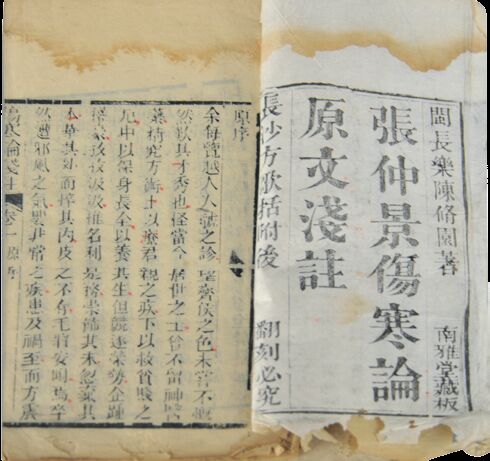 閩長樂陳修園著
南雅堂藏板
張仲景傷寒論
原文淺註
長沙方歌括附後
翻刻必究
原序
余每覽越人入虢之診望齊侯之色未嘗不慨
然歎其才秀也怪當今居世之士曾不留神醫
藥精究方術上以療君親之疾下以救貧賤之
厄中以保身長全以養其生但競逐榮勢企踵
權豪孜孜汲汲惟名利是務崇飾其末忽棄其
本華其外而悴其內皮之不存毛將安附焉卒
然遭邪風之氣嬰非常之疾患及禍至而方震
傷寒論淺註 卷一 原序